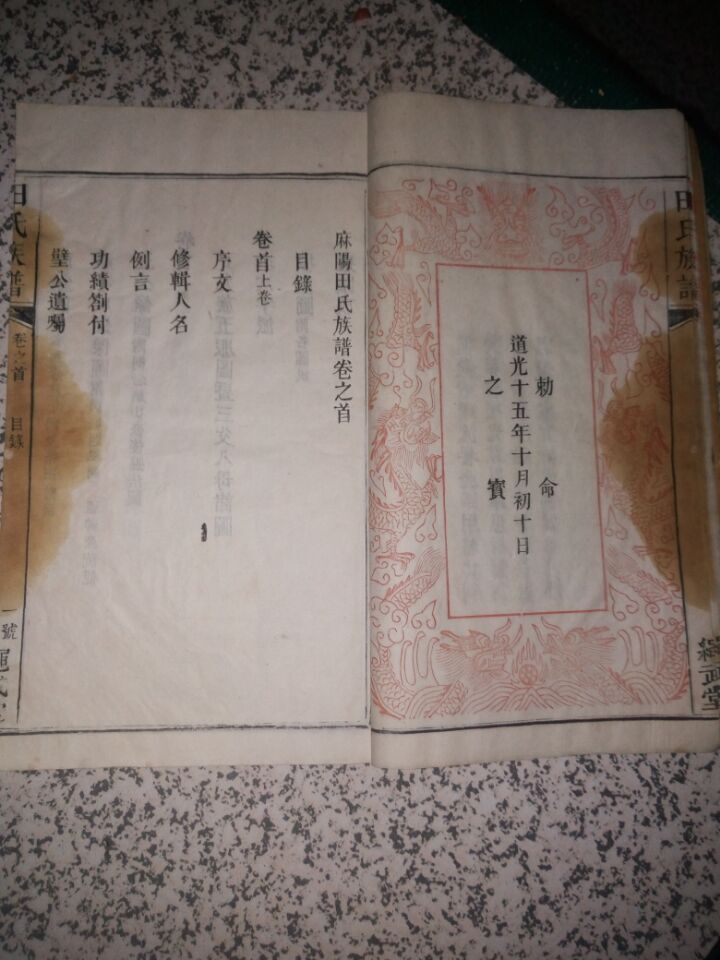 田氏族譜
繩武堂
勅命
道光十五年十月初十日
之寶
麻陽田氏族譜卷之首
目錄
卷首上卷
序文
修輯人名
例言
功績劄付
璧公遺囑
田氏族譜
卷之首
目錄
一號
繩武堂